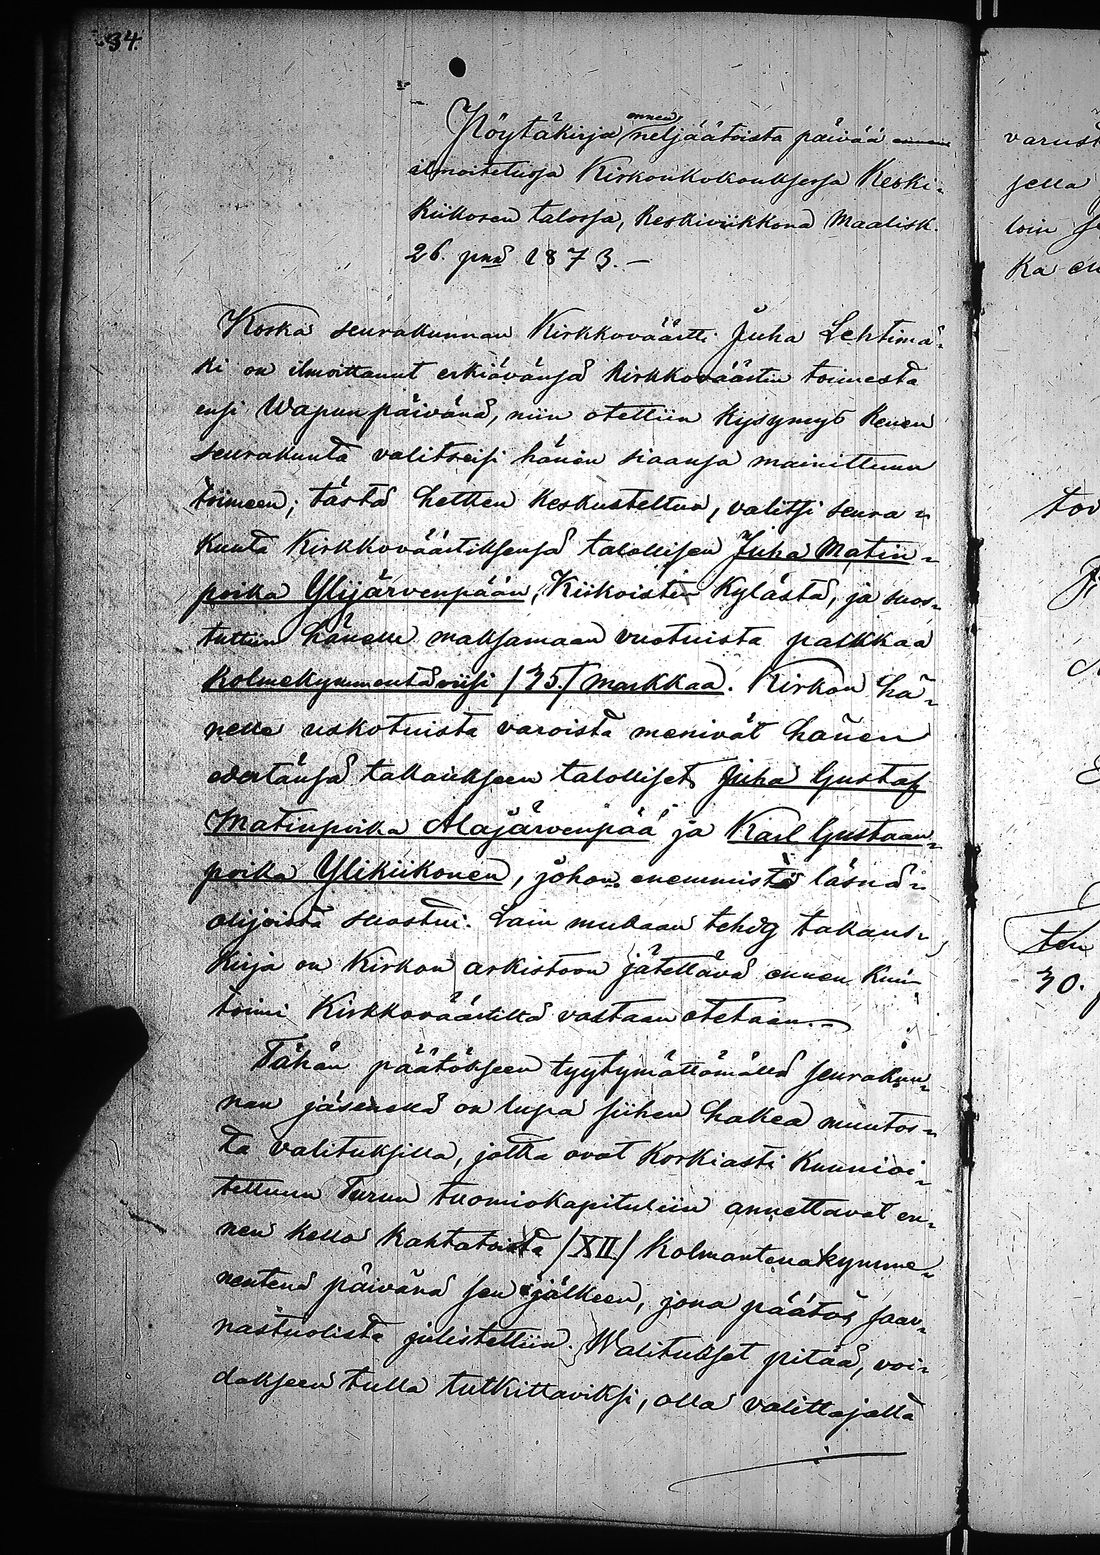 34.
Pöytäkirja ennen neljäätoista päivää ennen
ilmoitetussa Kirkonkokouksessa Keski-
kiikosen talossa, Keskiviikkona Maalisk.
26. pnä 1873. —
Koska seurakunnan Kirkkoväärtti Juha Lehtimä-
ki on ilmoittanut erkiävänsä kirkkoväärtin toimesta
ensi Wapunpäivänä, niin otettiin kysymys kenen
seurakunta valitseisi hänen siaansa mainittuun
toimeen; tästä hetken keskusteltua, valitsi seura-
kunta Kirkkoväärtiksensä talollisen Juha Matin-
poika Ylijärvenpään, Kiikoisten kylästä, ja suos-
tuttiin hänelle maksamaan vuotuista palkkaa
kolmekymmentäviisi /35./ markkaa. Kirkon hä-
nelle uskotuista varoista menivät hänen
edestänsä takaukseen talolliset Juha Gustaf
Matinpoika Alajärvenpää ja Karl Gustaan-
poika Ylikiikonen, johon enemmistö läsnä-
olijoista suostui. Lain mukaan tehty takaus-
kirja on kirkon arkistoon jätettävä ennen kuin
toimi Kirkkoväärtiltä vastaan otetaan. —
Tähän päätökseen tyytymättömällä seurakun-
nan jäsenellä on lupa siihen hakea muutos-
ta valituksilla, jotka ovat Korkiasti Kunnioi-
tettuun Turun tuomiokapituliin annettavat en-
nen kello kahtatoista /XII/ kolmantenakymme-
nentenä päivänä sen jälkeen, jona päätös saar-
nastuolista julistettiin. Walitukset pitää, voi-
dakseen tulla tutkittaviksi, olla valittajalta
varust
sella
loin
ka en
tov
ten
30.